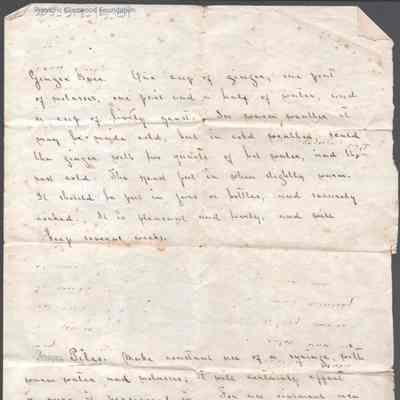 Glenwood Foundation
Ginger Beer. One cup of ginger, one pint
of molasses, one pint and a half of water, and
a cup of lively yeast. In warm weather it
may be made cold, but in cold weather, scald
the ginger with two quarts of hot water, and the
rest cold. The yeast put in when slightly warm.
It should be put in jars or bottles, and securely
corked. It is pleasant and lively, and will
keep several weeks.
Piles. Make constant use of a syringe, with
warm water and molasses, it will certainly effect
a cure if persevered in.